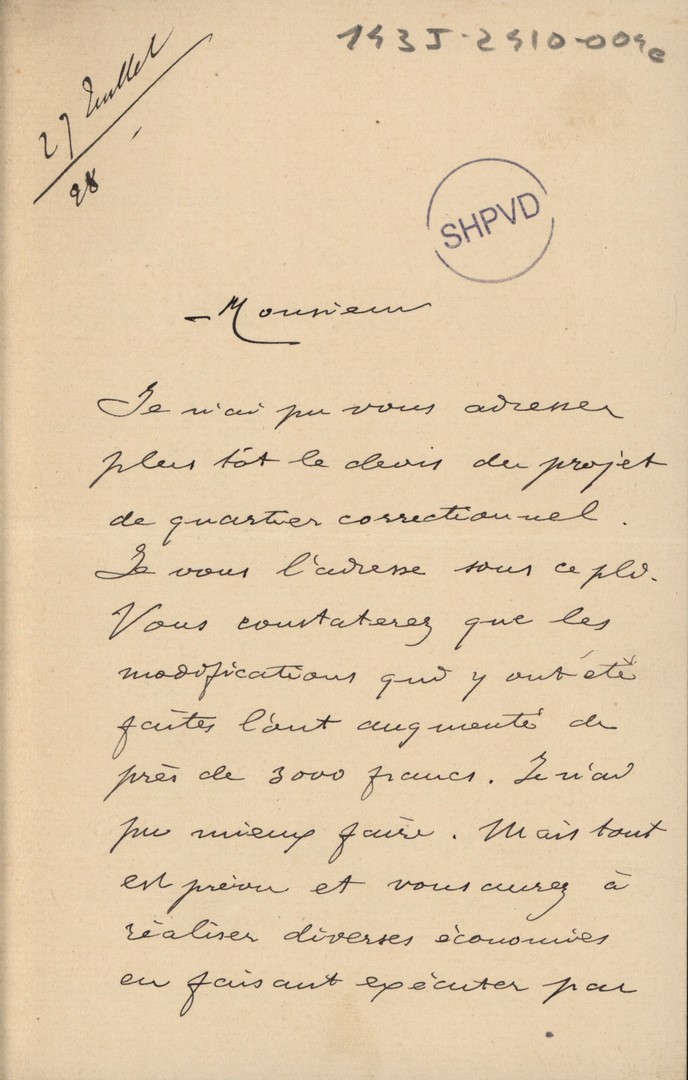 143J-2410-004e
27 Juillet
98
SHPVD
Monsieur
Je n'ai pu vous adresser
plus tôt le devis du projet
de quartier correctionnel.
Je vous l'adresse sous ce pli.
Vous constaterez que les
modifications qui y ont été
faites l'ont augmenté de
près de 3000 francs. Je n'ai
pu mieux faire. Mais tout
est prévu et vous aurez à
réaliser diverses économies
en faisant exécuter par